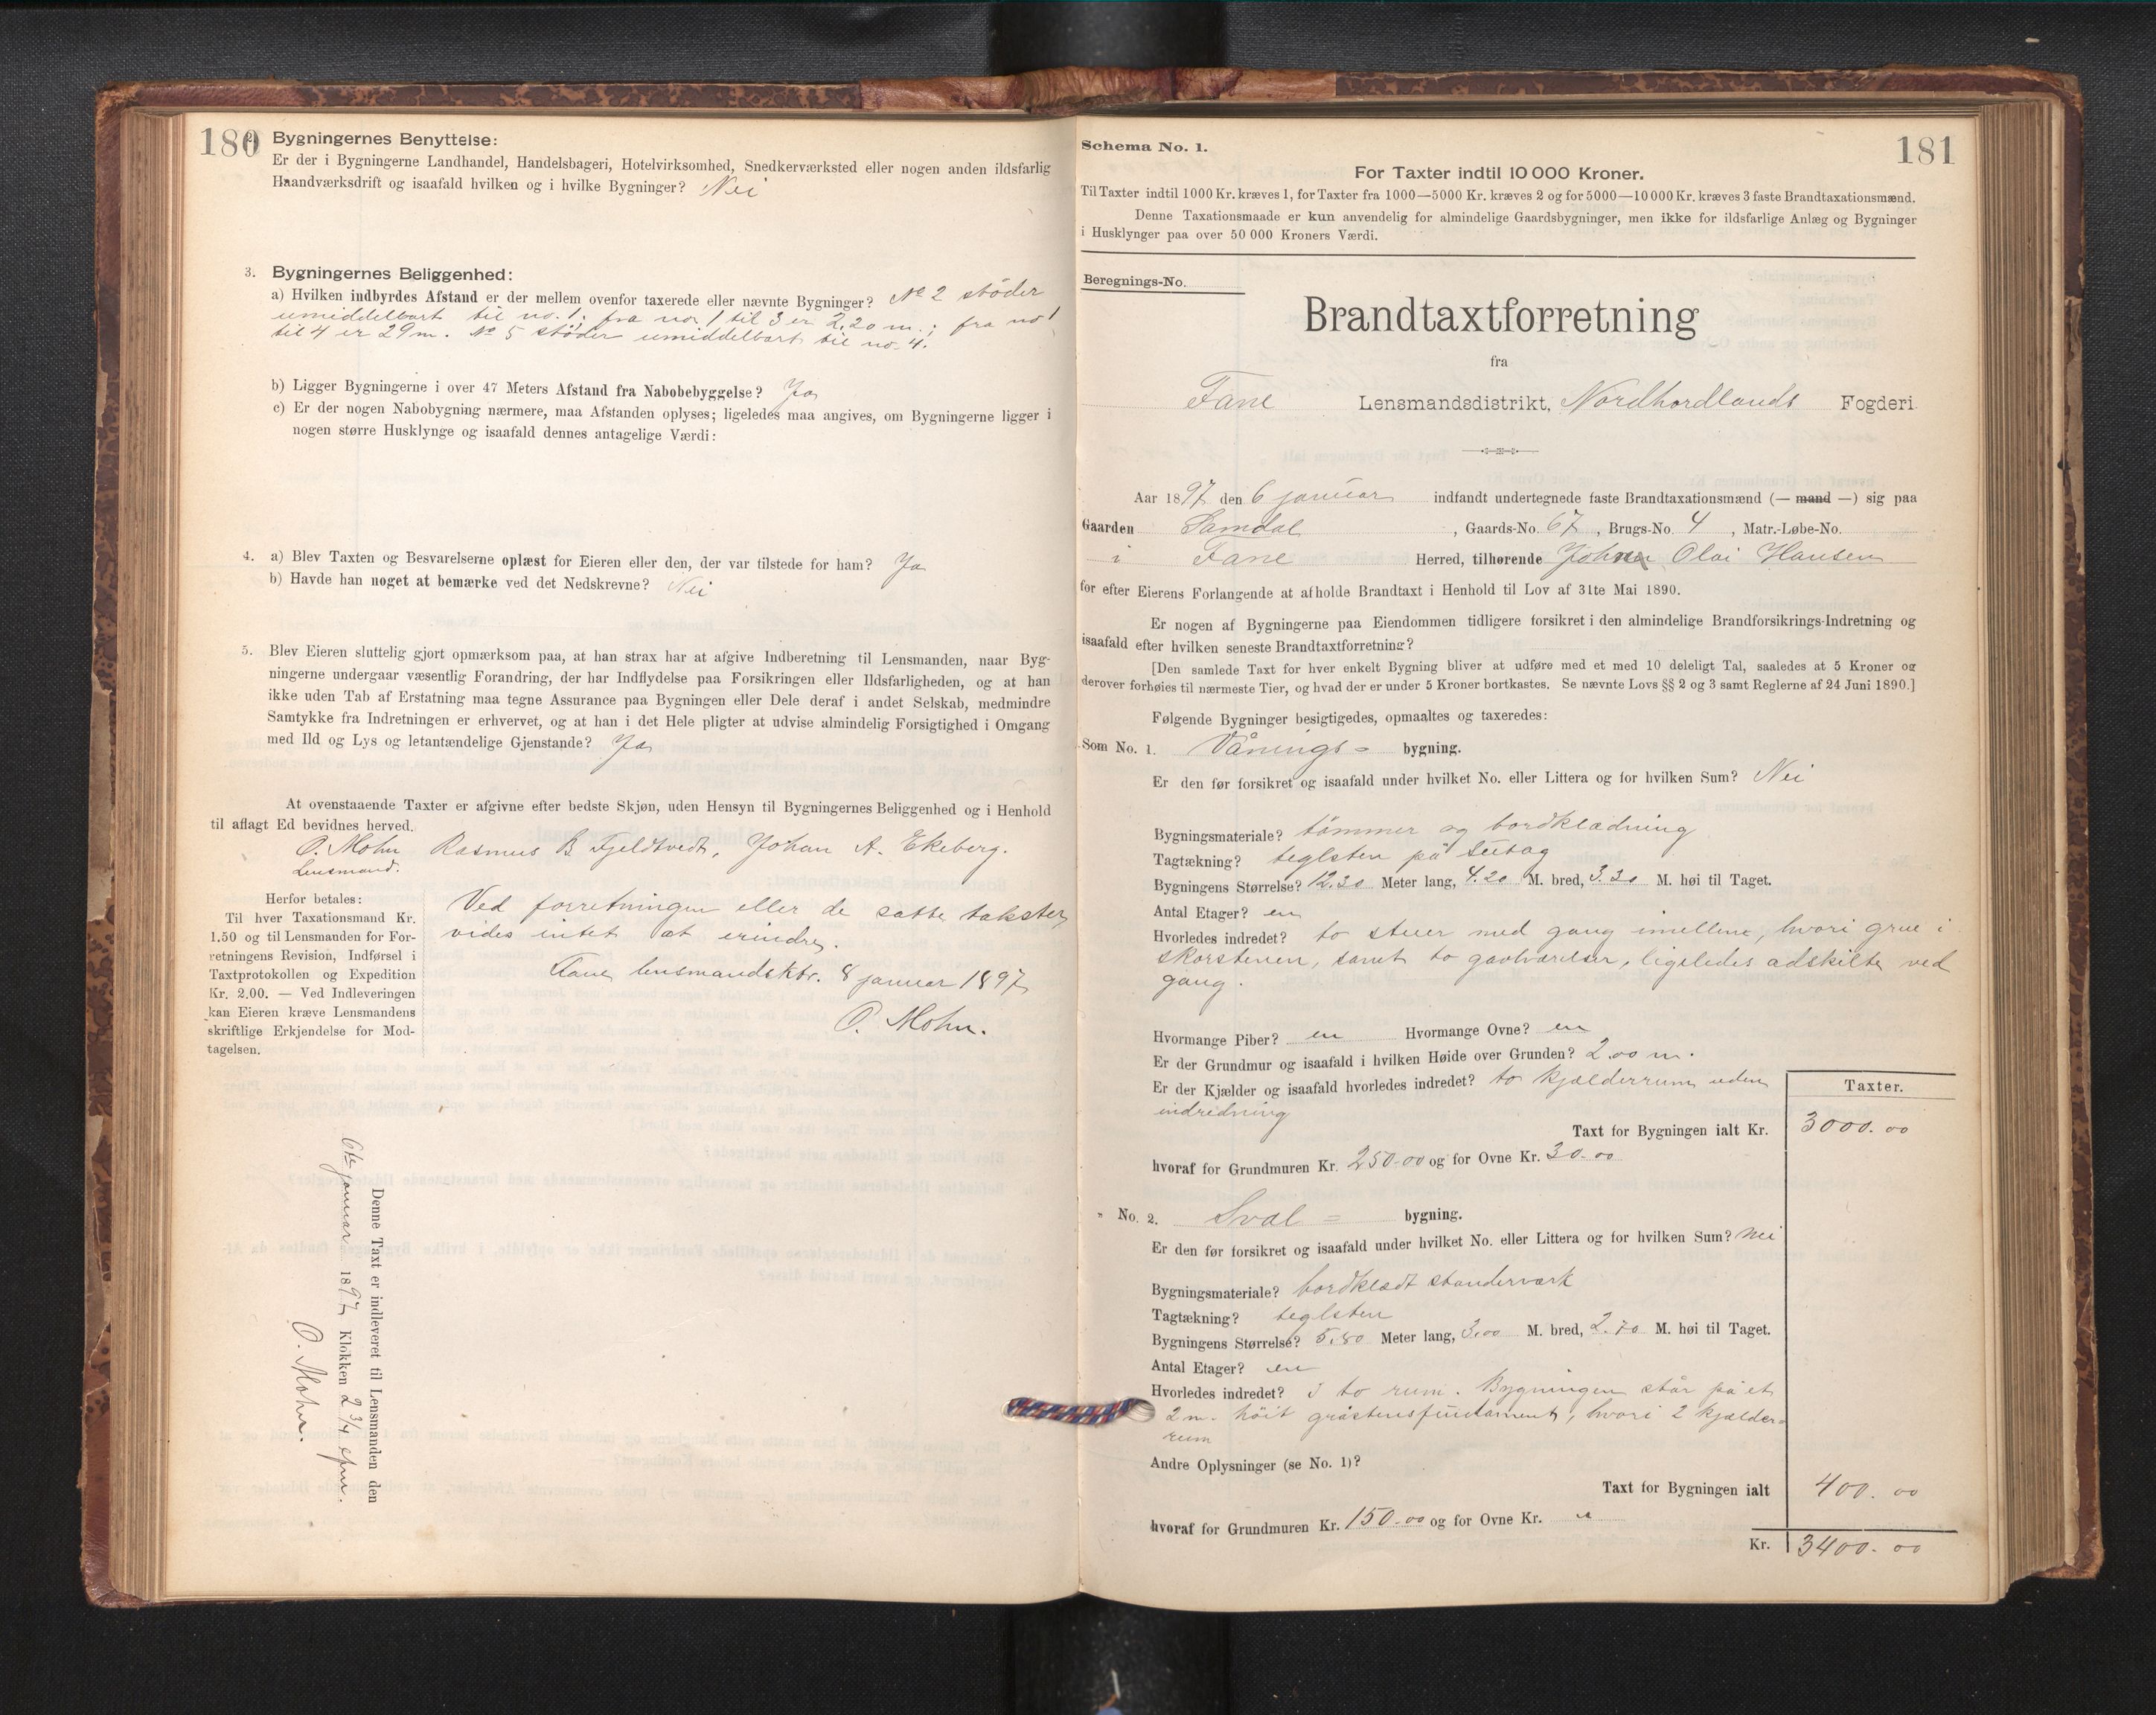 180
2. Bygningernes Benyttelse:
Er der i Bygningerne Landhandel, Handelsbageri, Hotelvirksomhed, Snedkerværksted eller nogen anden ildsfarlig
Haandværksdrift og isaafald hvilken og i hvilke Bygninger? Nei
3. Bygningernes Beliggenhed:
a) Hvilken indbyrdes Afstand er der mellem ovenfor taxerede eller nævnte Bygninger? No 2 støder
umiddelbart til no. 1; fra no. 1 til 3 er 2,20 m.; fra no 1
til 4 er 29 m. No 5 støder umiddelbart til no. 4.
b) Ligger Bygningerne i over 47 Meters Afstand fra Nabobebyggelse? Ja
c) Er der nogen Nabobygning nærmere, maa Afstanden oplyses; ligeledes maa angives, om Bygningerne ligger i
nogen større Husklynge og isaafald dennes antagelige Værdi:
4. a) Blev Taxten og Besvarelserne oplæst for Eieren eller den, der var tilstede for ham? Ja
b) Havde han noget at bemærke ved det Nedskrevne? Nei
5. Blev Eieren sluttelig gjort opmærksom paa, at han strax har at afgive Indberetning til Lensmanden, naar Byg-
ningerne undergaar væsentlig Forandring, der har Indflydelse paa Forsikringen eller Ildsfarligheden, og at han
ikke uden Tab af Erstatning maa tegne Assurance paa Bygningen eller Dele deraf i andet Selskab, medmindre
Samtykke fra Indretningen er erhvervet, og at han i det Hele pligter at udvise almindelig Forsigtighed i Omgang
med Ild og Lys og letantændelige Gjenstande? Ja
At ovenstaaende Taxter er afgivne efter bedste Skjøn, uden Hensyn til Bygningernes Beliggenhed og i Henhold
til aflagt Ed bevidnes herved.
O. Mohn Rasmus B Fjeldtvedt, Johan A. Ekeberg.
Lensmand.
Herfor betales:
Til hver Taxationsmand Kr.
1.50 og til Lensmanden for For-
retningens Revision, Indførsel i
Taxtprotokollen og Expedition
Kr. 2.00. — Ved Indleveringen
kan Eieren kræve Lensmandens
skriftlige Erkjendelse for Mod-
tagelsen.
Ved forretningen eller de satte takster
vides intet at erindre.
Fane lensmandsktr. 8 januar 1897
O. Mohn.
Denne Taxt er indleveret til Lensmanden den
6te januar 1897 Klokken 2 3/4 efm.
O. Mohn.
181
Schema No. 1.
For Taxter indtil 10 000 Kroner.
Til Taxter indtil 1000 Kr. kræves 1, for Taxter fra 1000—5000 Kr. kræves 2 og for 5000—10 000 Kr. kræves 3 faste Brandtaxationsmænd.
Denne Taxationsmaade er kun anvendelig for almindelige Gaardsbygninger, men ikke for ildsfarlige Anlæg og Bygninger
i Husklynger paa over 50 000 Kroners Værdi.
Beregnings-No.
Brandtaxtforretning
fra
Fane Lensmandsdistrikt, Nordhordlands Fogderi
Aar 1897 den 6 januar indfandt undertegnede faste Brandtaxationsmænd (— mand —) sig paa
Gaarden Samdal, Gaards-No. 67, Brugs-No. 4, Matr.-Løbe-No.
i Fane Herred, tilhørende Johan Olai Hansen
for efter Eierens Forlangende at afholde Brandtaxt i Henhold til Lov af 31te Mai 1890.
Er nogen af Bygningerne paa Eiendommen tidligere forsikret i den almindelige Brandforsikrings-Indretning og
isaafald efter hvilken seneste Brandtaxtforretning?
[Den samlede Taxt for hver enkelt Bygning bliver at udføre med et med 10 deleligt Tal, saaledes at 5 Kroner og
derover forhøies til nærmeste Tier, og hvad der er under 5 Kroner bortkastes. Se nævnte Lovs §§ 2 og 3 samt Reglerne af 24 Juni 1890.]
Følgende Bygninger besigtigedes, opmaaltes og taxeredes:
Som No. 1. Vånings= bygning.
Er den før forsikret og isaafald under hvilket No. eller Littera og for hvilken Sum? Nei
Bygningsmateriale? tømmer og bordklædning
Tagtækning? teglsten på sutag
Bygningens Størrelse? 12.30 Meter lang, 4.20 M. bred, 3.30 M. høi til Taget.
Antal Etager? en
Hvorledes indredet? to stuer med gang imellem, hvori grue i
skorstenen, samt to gavlværelser, ligeledes adskilte ved
gang.
Hvormange Piber? en Hvormange Ovne? en
Er der Grundmur og isaafald i hvilken Høide over Grunden? 2.00 m.
Er der Kjælder og isaafald hvorledes indredet? to kjælderrum uden
indredning
Taxter.
Taxt for Bygningen ialt Kr. 3000.00
hvoraf for Grundmuren Kr. 250.00 og for Ovne Kr. 30.00
" No. 2. Sval= bygning.
Er den før forsikret og isaafald under hvilket No. eller Littera og for hvilken Sum? nei
Bygningsmateriale? bordklædt standerværk
Tagtækning? teglsten
Bygningens Størrelse? 5.80 Meter lang, 3.00 M. bred, 2.70 M. høi til Taget.
Antal Etager? en
Hvorledes indredet? I to rum. Bygningen står på et
2 m. høit gråstensfundament, hvori 2 kjælder=
rum
Andre Oplysninger (se No. 1)?
Taxt for Bygningen ialt 400.00
hvoraf for Grundmuren Kr. 150.00 og for Ovne Kr. "
Kr. 3400.00